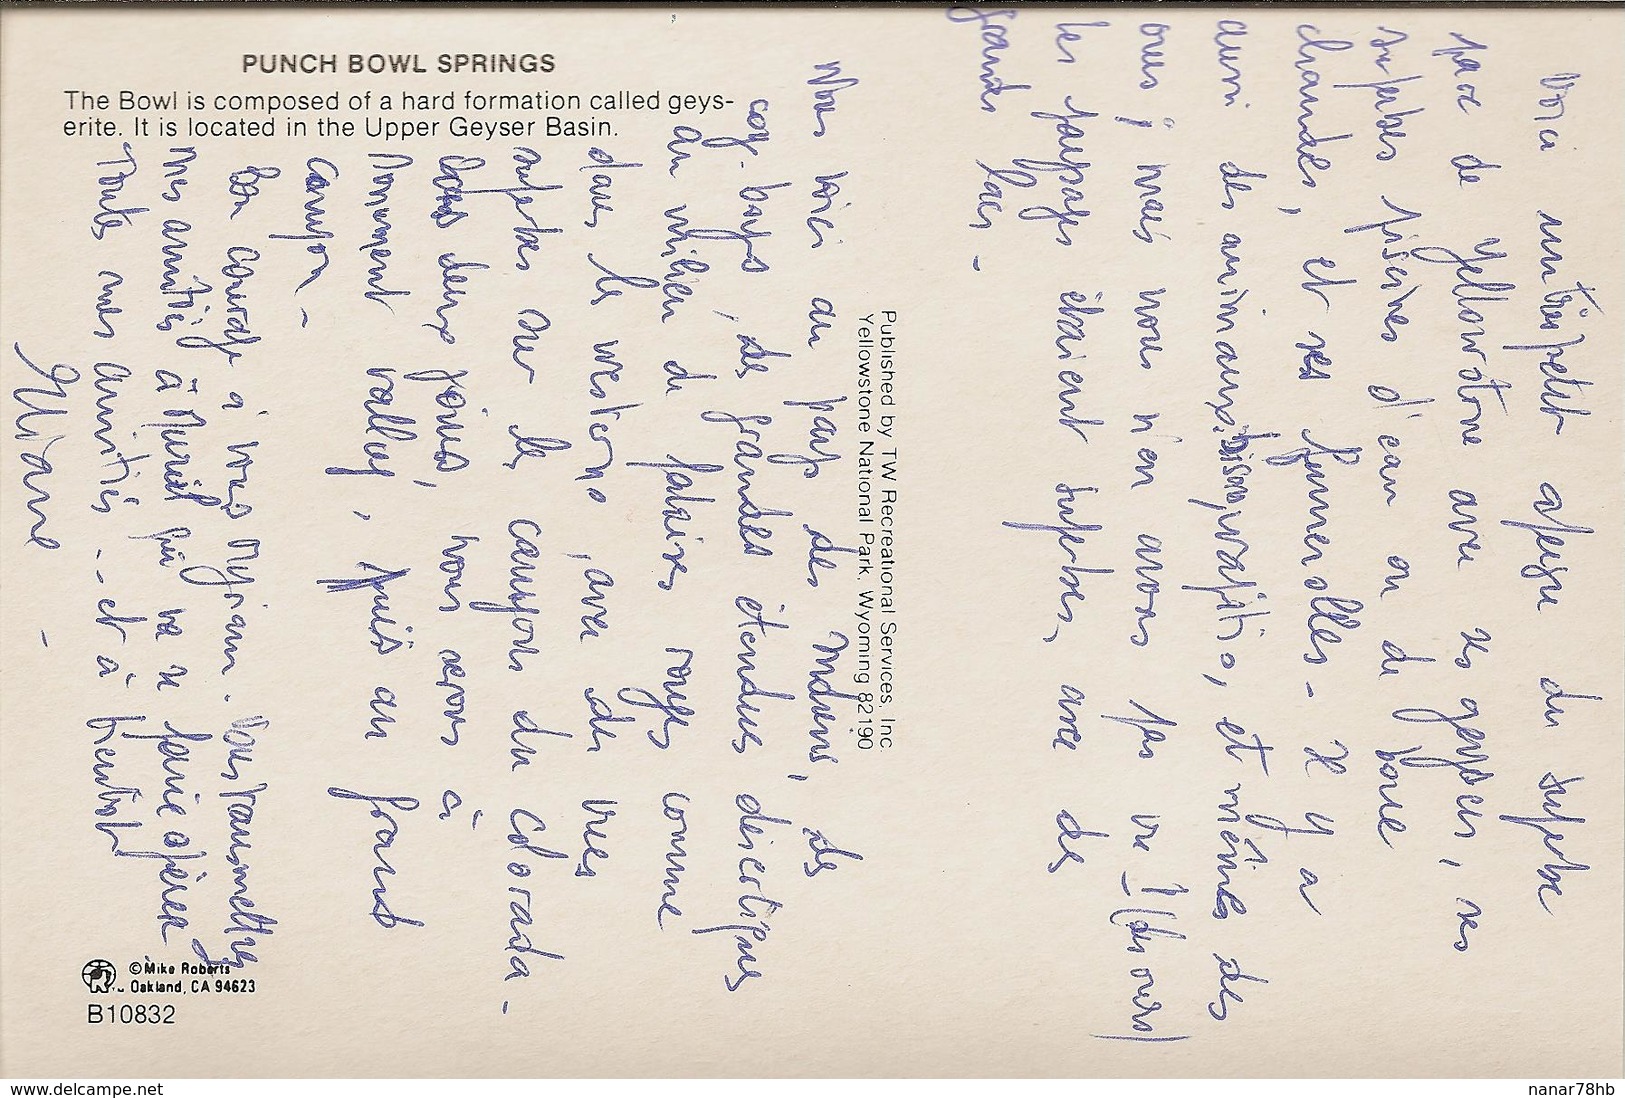 PUNCH BOWL SPRINGS
The Bowl is composed of a hard formation called geys-
erite. It is located in the Upper Geyser Basin.
Published by TW Recreational Services, Inc
Yellowstone National Park, Wyoming 82190
Voici un très petit aperçu du superbe
parc de Yellowstone avec ses geysers, ses
superbes piscines d'eau ou de boue
chaudes, et ses fumerolles - Il y a
aussi des animaux, bisons, wapitis, et mêmes des
ours ; mais nous n'en avons pas vu ! (d'ours)
les paysages étaient superbes, avec de
grands lacs -
Nous voici au pays des Indiens, des
cow-boys, de grandes étendues désertiques
au milieu de falaises rouges comme
dans les westerns, avec des vues
superbes sur les canyons du colorado -
dans deux jours, nous serons à
Monument valley, puis au grand
canyon -
Bon courage à vous Myriam. Vous transmettrez
mes amitiés à Muriel qui va se faire opérer
Toutes mes amitiés - et à bientôt
Liliane -
©Mike Roberts
Oakland, CA 94623
B10832
www.delcampe.net
nanar78hb